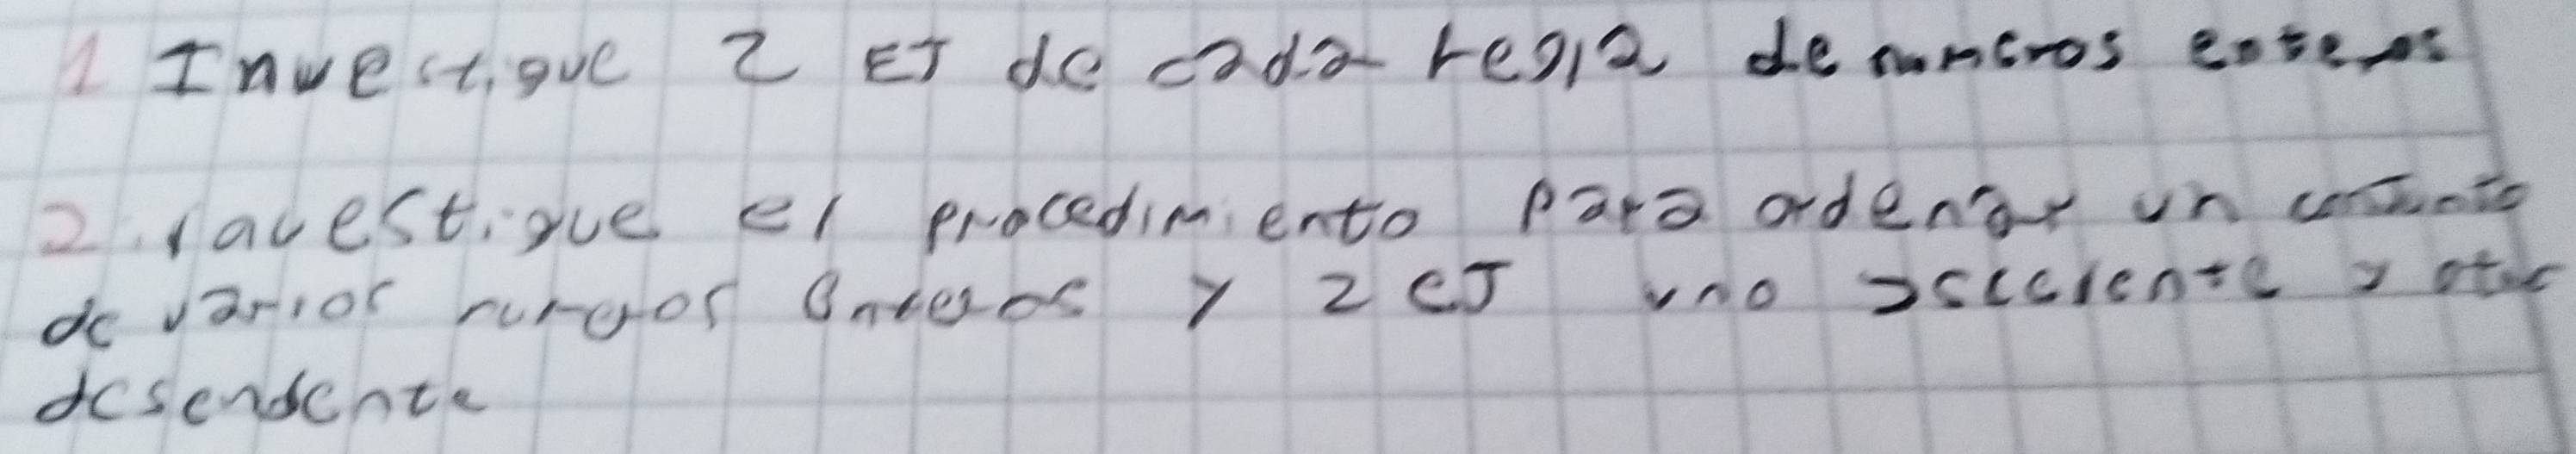 1 Investigue 2 EJ de cada regla de numeros enteros
2. investigue el procedimiento para ordenar un conjunto
de varios enteros y 2 EJ uno y otro
desendente